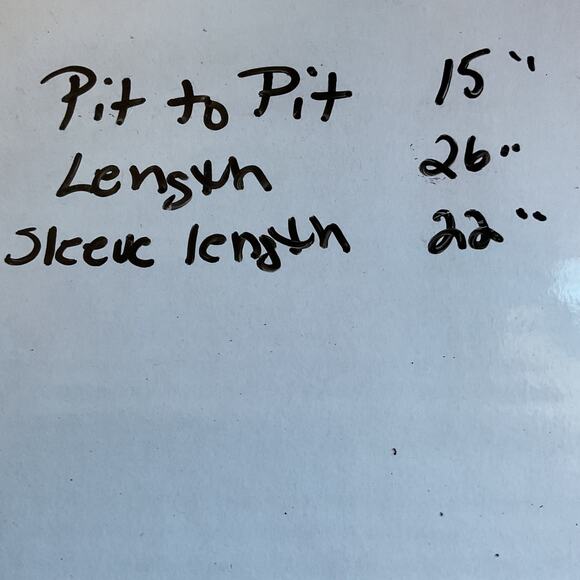 Pit to Pit 15"
Length 26"
Sleeve length 22"